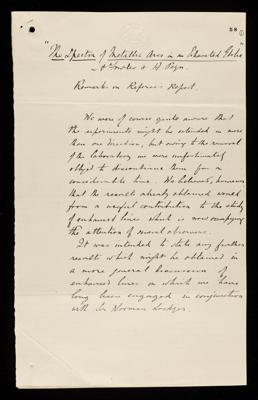 58 ①
"The Spectra of Metallic Arcs in an Exhausted Globe"
– A Fowler & H. Payn.
Remarks on Referee's Report.
We were of course quite aware that
the experiments might be extended in more
than one direction, but owing to the removal
of the laboratory we were unfortunately
obliged to discontinue them for a
considerable time. We believed, however,
that the results already obtained would
form a useful contribution to the study
of enhanced lines which is now occupying
the attention of several observers.
It was intended to state any further
results which might be obtained in
a more general discussion of
enhanced lines on which we have
long been engaged in conjunction
with Sir Norman Lockyer.